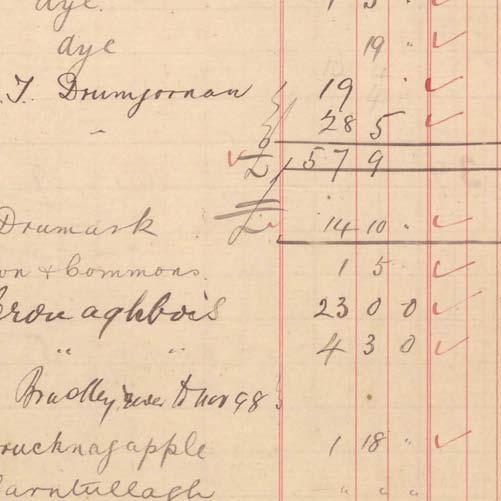 dye. 1 5 "
dye 19 "
. J. Drumgornan 19 "
" 28 5
£ 157 9
Drumask £ 14 10 "
on & Commons. 1 5
ronaghbois 23 0 0
" " 4 3 0
Bradley to Nov 98
rucknagapple 1 18 "
arntullagh " " "